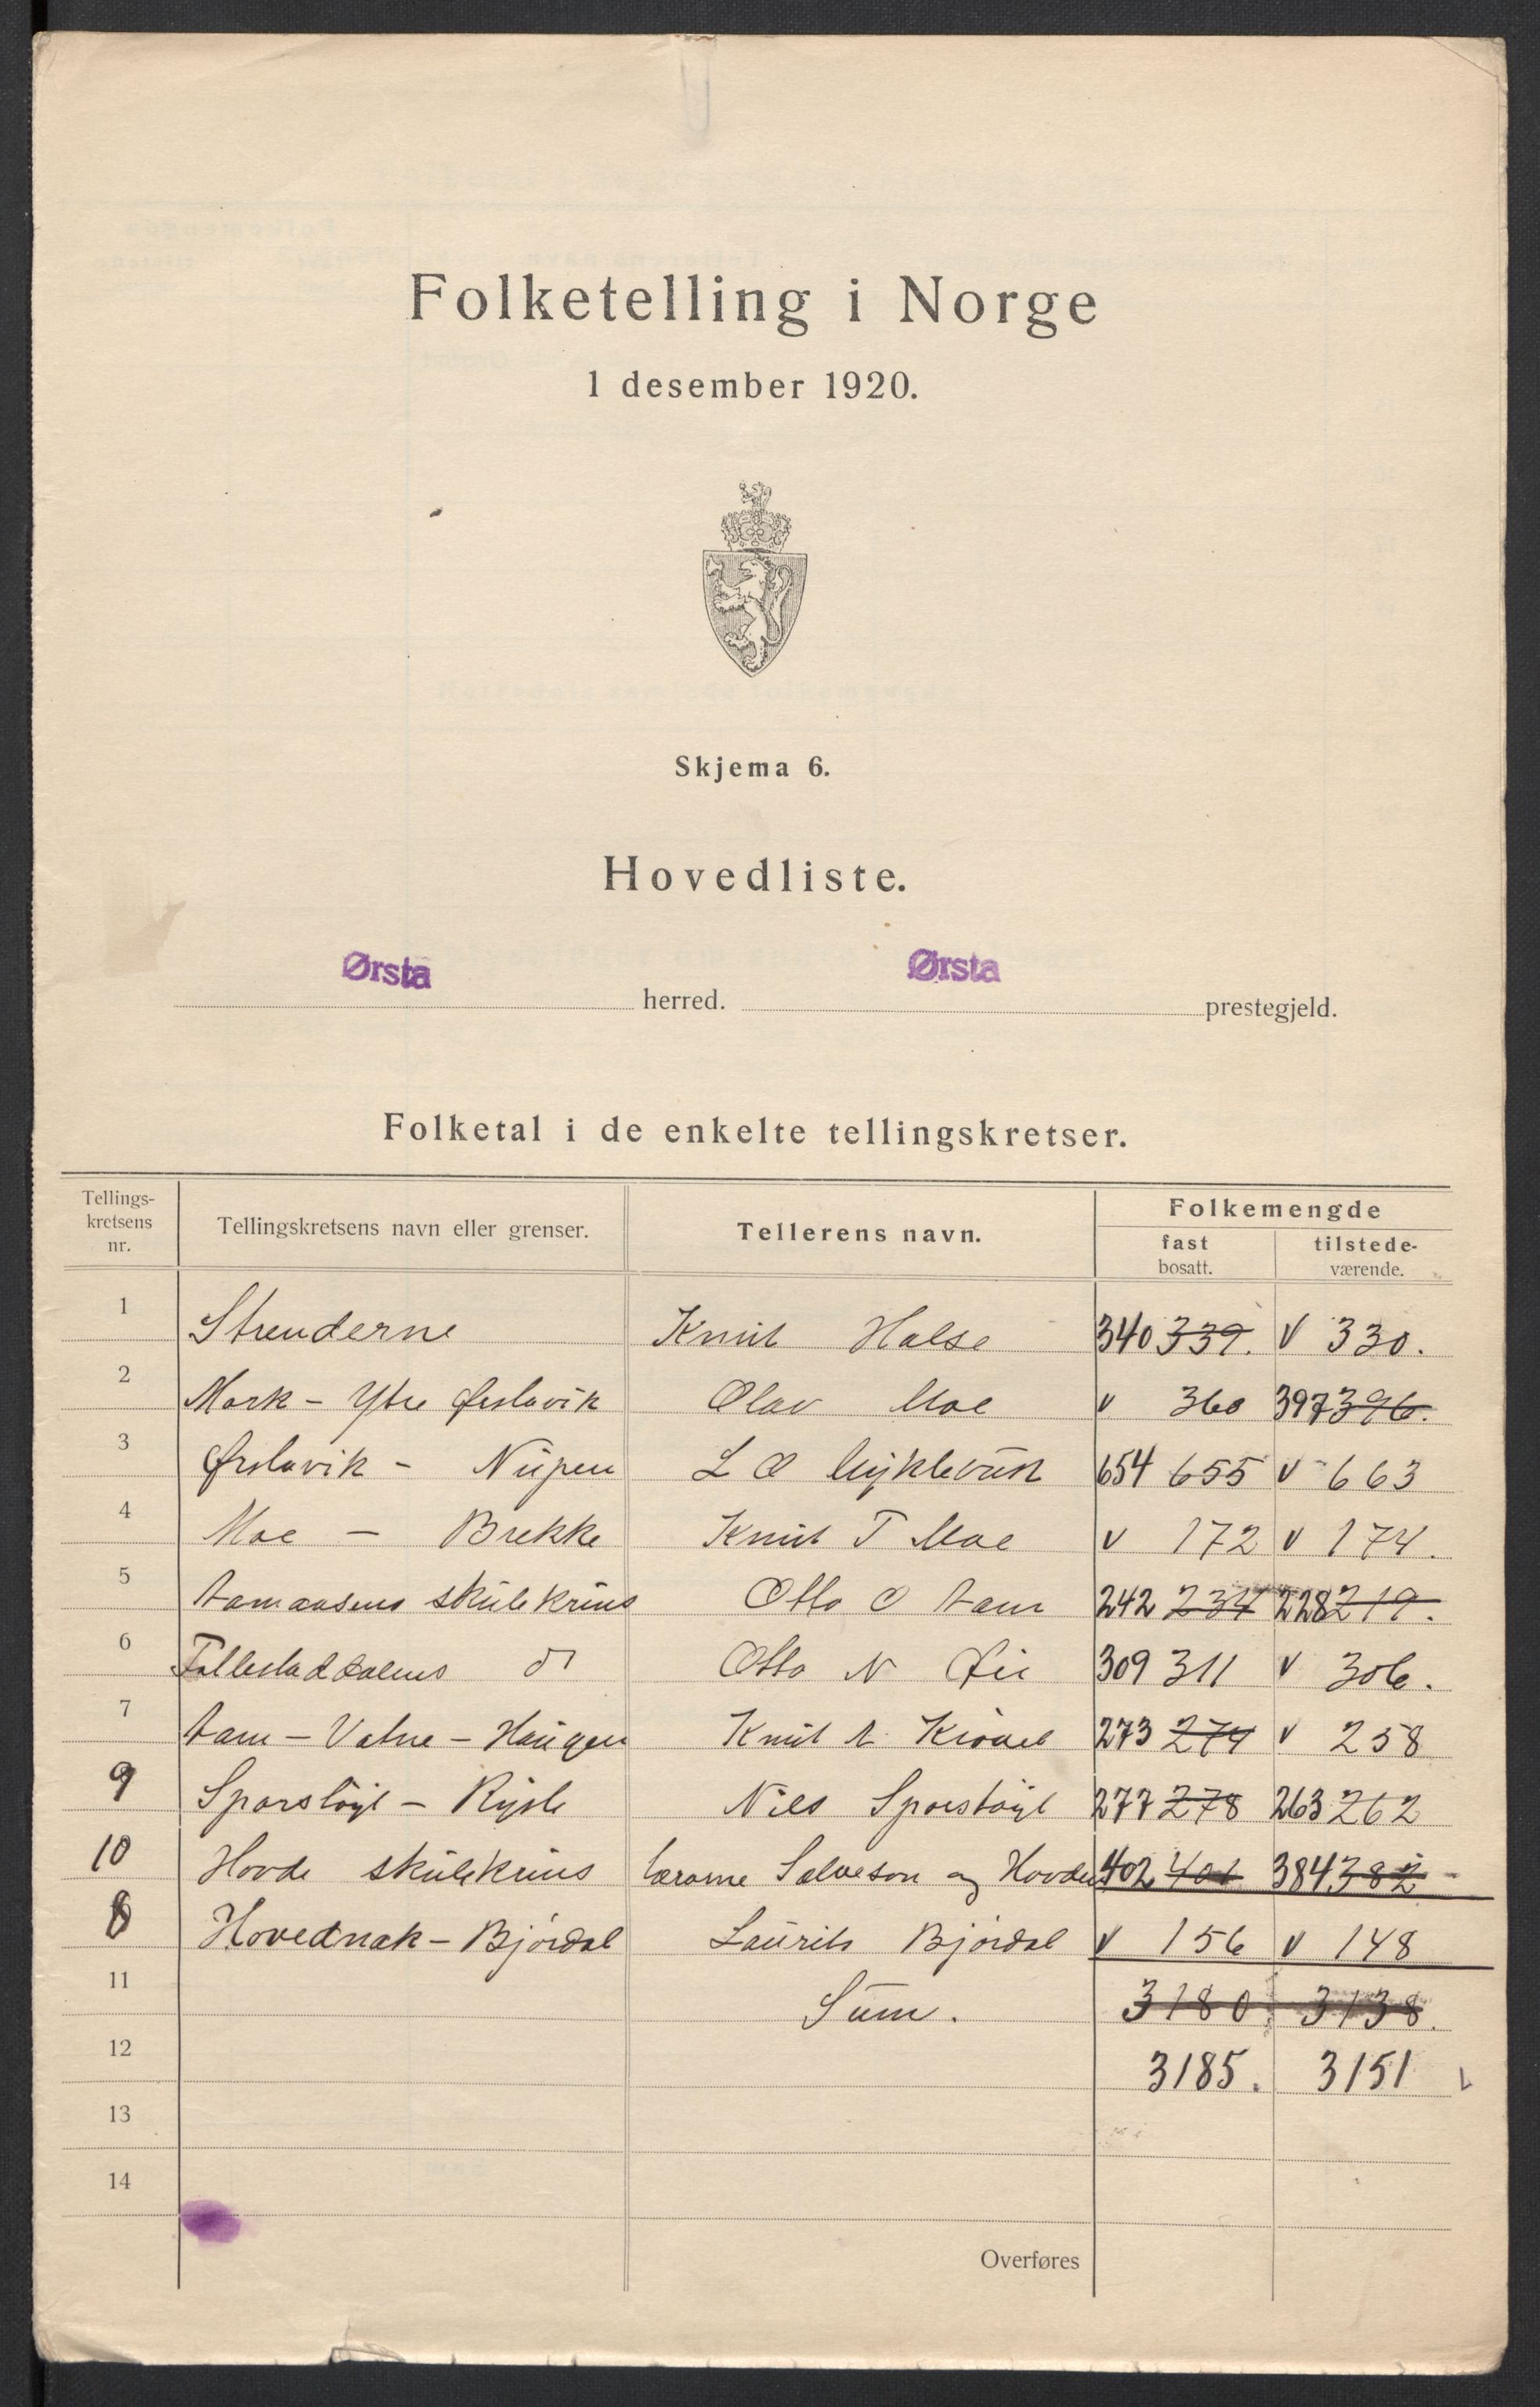 Folketelling i Norge
1 desember 1920.
Skjema 6.
Hovedliste.
Ørsta herred. Ørsta prestegjeld.
Folketal i de enkelte tellingskretser.
Tellings-kretsens nr. Tellingskretsens navn eller grenser. Tellerens navn. Folkemengde
fast bosatt. tilstede-værende.
1 Strenderne Knut Halse 340 339. v 330.
2 Mork - Ytre Ørstavik Olav Moe v 360 397 396.
3 Ørstavik - Nupen L O Myklebust 654 655 v 663
4 Moe - Brekke Knut T Moe v 172 v 174.
5 Aamaasens skulekrins Otto O Aam 242 234 228 219.
6 Follestaddalens do Otto N Øie 309 311 v 306.
7 Aam - Vatne - Haugen Knut A. 273 274 v 258
9 Sporstøyl - Rysle Nils Sporstøyl 277 278 263 262
10 Hovde skulekrins lærarne Salveson og Hovde 402 401 384 382 -
8 Hovednak - Bjørdal Laurits Bjørdal v 156 v 148
11 Sum. 3180. 3138.
12 3185. 3151
13
14
Overføres